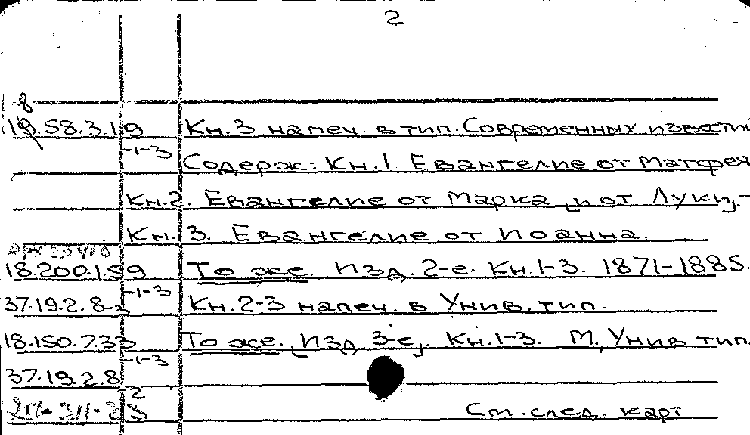 2
8
18.58.3.19 Кн.3 напеч. в тип. Современных известий
-1-3
Содерж: Кн.1. Евангелие от Матфея
Кн.2. Евангелие от Марка и от Луки,-
Кн.3. Евангелие от Иоанна.
18.200.159 То же. Изд. 2-е. Кн.1-3. 1871-1885.
-1-3
37.19.2.8-3 Кн.2-3 напеч. в Унив. тип.
18.150.733 То же. [Изд. 3-е]. Кн.1-3. М., Унив тип.
-1-3
37.19.2.8
-2
См. след. карт